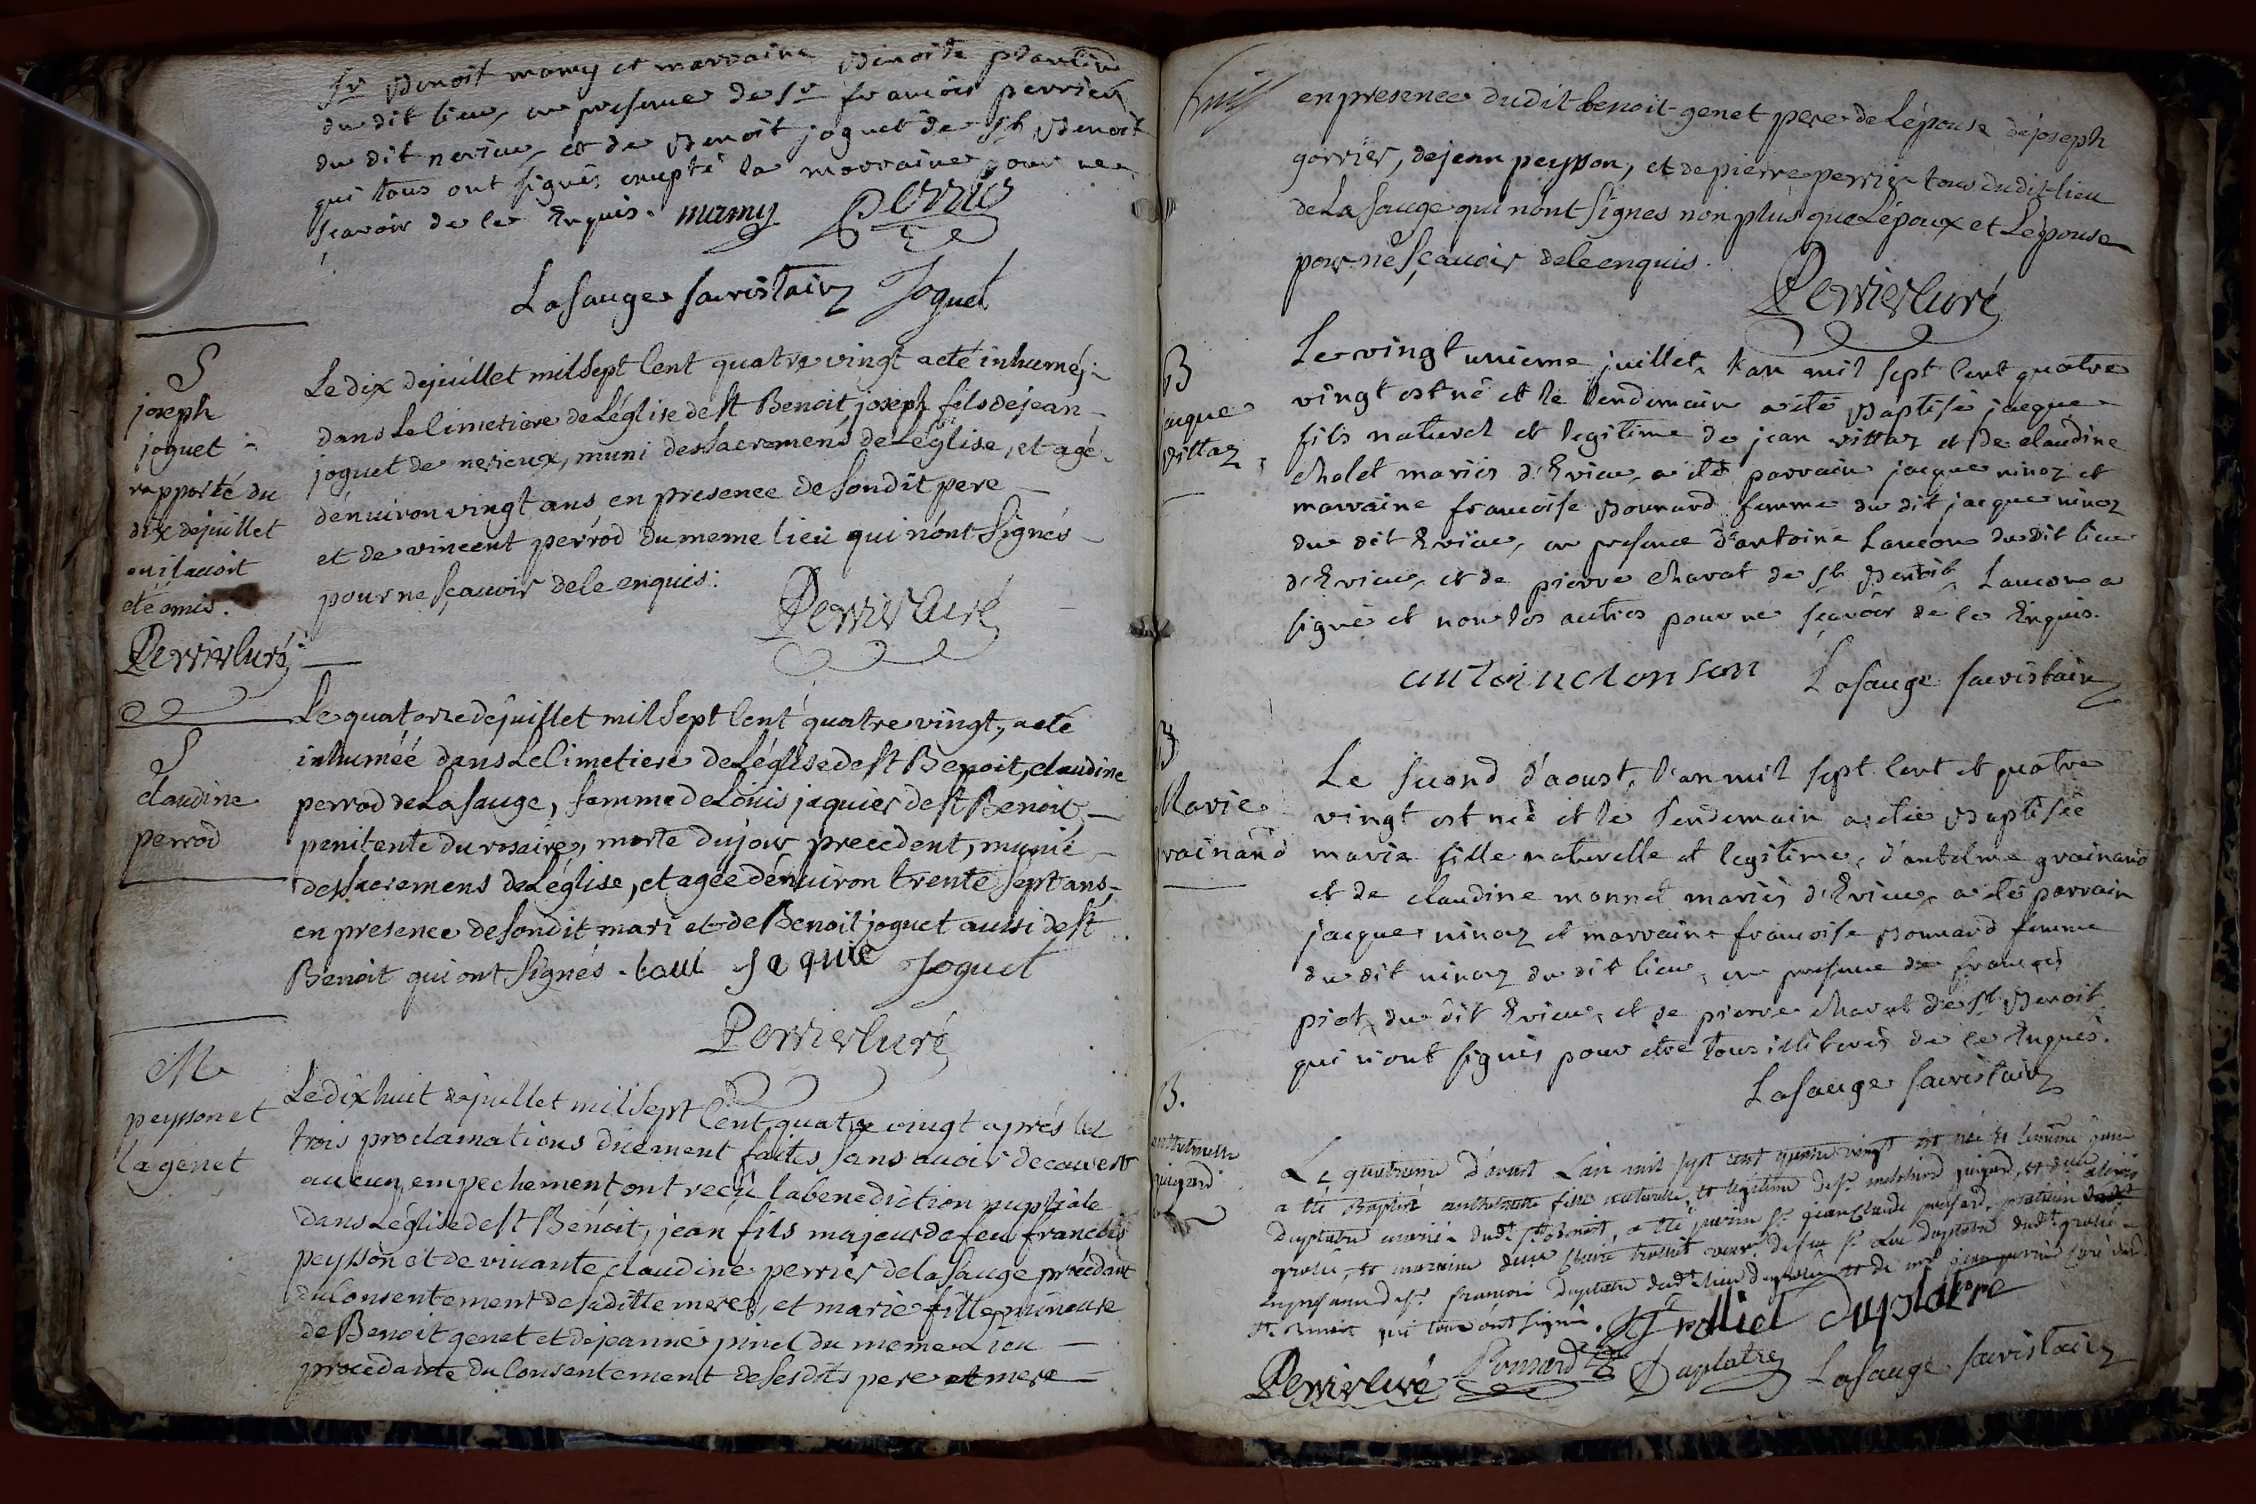 Sr Benoit mamy et marraine Benoite
du dit lieu, en presence de Sr francois perrier
du dit nerieu, et de Benoit joguet de St Benoit
qui tous ont signés excepté la marraine pour ne
scavoir de ce Enquis. mamy perrier
Lasauge sacristain Joguet
S
joseph
joguet
rapporté du
dix dejuillet
ou il auoit
eté omis.
Perrier Curé
Le dix dejuillet mil Sept Cent quatre vingt a eté inhumé
dans Le Cimetiere de Léglise de St Benoit joseph fils de jean
joguet de nerieux, muni des sacremens de Léglise, et agé
dénuiron vingt ans en presence de Sondit pere
et de vincent perrod du meme lieu qui nónt Signés
pour ne Sçauoir de le enquis:
Perrier Curé
S
claudine
perrod
Le quatorze dejuillet mil Sept Cent quatre vingt, a eté
inhuméé dans Le Cimetiere de Léglise de St Benoit, claudine
perrod de La Sauge, femme de Louis jaquier de St Benoit,
penitente du rosaire, morte du jour precedent, munie
des Sacremens de Léglise, et agée dénuiron trente Sept ans,
en presence de Sondit mari et de Benoit joguet aussi de St
Benoit qui ont Signés. Joguet
Perrier Curé
M
peysson et
la genet
Le dix huit dejuillet mil Sept Cent quatre vingt aprés les
trois proclamations düement faites Sans auoir decouvert
aucun empechement, ont reçû la benediction nuptiale
dans Léglise de St Benoit, jean fils majeur de feu francois
peysson et de viuante claudine perrier de la Sauge procedant
du Consentement de Sa ditte mere, et marie fille mineure
de Benoit genet et de jeanne pinel du meme Lieu
procedante du Consentement de Ses dits pere et mere
en presence dudit benoit genet pere de Lépouse de joseph
gorrier, de jean peysson, et de pierre perrier tous dudit lieu
de La Sauge qui nónt Signés non plus que Lépoux et Lépouse
pour ne Sçauoir de le enquis.
Perrier Curé
B
jacque
vittaz
Le vingt unieme juillet, l'an mil sept cent quatre
vingt est né et le lendemain a été Baptisé jacque
fils naturel et legitime de jean vittaz et de claudine
Cholet mariés d'Evieu, a été parrain jacque ninoz et
marraine francoise Bonnard femme du dit jacque ninoz
du dit Evieu, en presence d'antoine Lancon du dit lieu
d'Evieu, et de pierre Chavat de St Benoit, Lancon a
signé et non les autres pour ne scavoir de ce Enquis.
antoine lonson Lasauge sacristain
B
Marie
grainand
Le second d'aoust, l'an mil sept cent et quatre
vingt est née et le lendemain a été Baptisée
marie fille naturelle et legitime, d'antelme grainand
et de claudine monnet mariés d'Evieu, a été parrain
jacque ninoz et marraine francoise Bonnard femme
du dit ninoz du dit lieu, en presence de francois
piot du dit Evieu, et de pierre Chavat de St Benoit
qui n'ont signés pour etre tous illiterés de ce Enquis.
Lasauge sacristain
B.
Le quatrieme d'aoust L'an mil sept cent quatre vingt est née et
a été Baptisé fille naturelle et legitime de Sr
Duplatre mariés dudt St Benoit, a été parrain Sr jean Claude
et marraine
en presence de Sr francois Duplatre
St Benoit qui tous ont signés. Trolliet Duplatre
Perrier Curé Bonnard Duplatre Lasauge sacristain